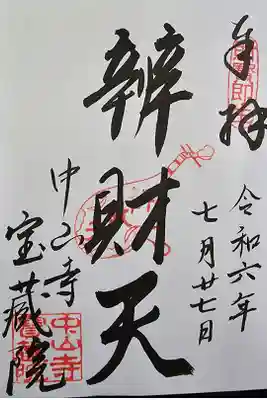 奉拝
令和六年
七月廿七日
辨財天
中山寺
宝蔵院
中山寺